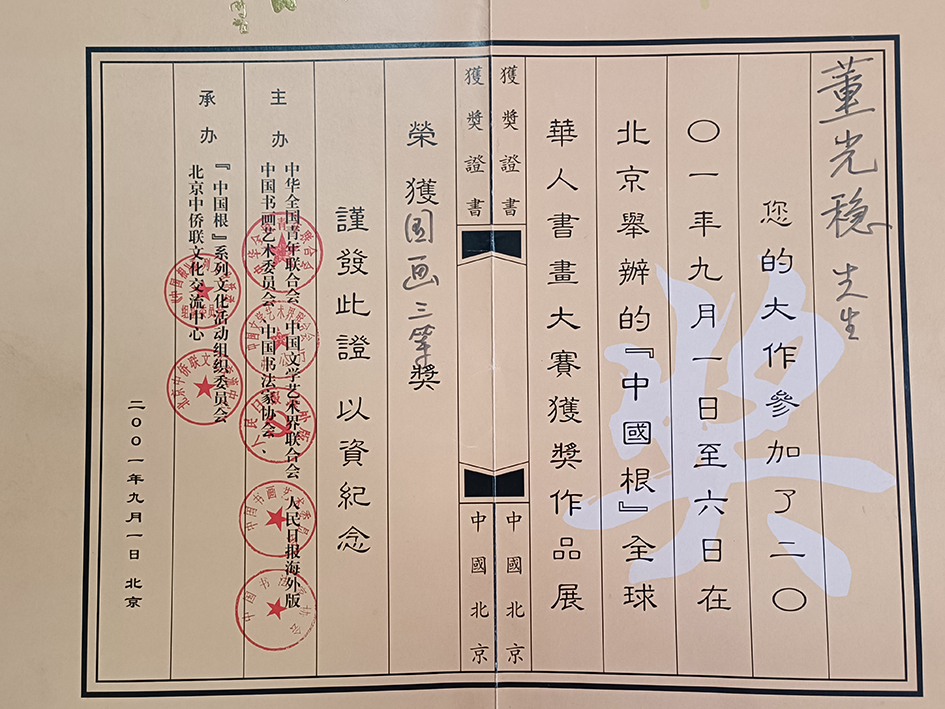 董光穏 先生
您的大作參加了二〇
〇一年九月一日至六日在
北京舉辦的『中國根』全球
華人書畫大賽獲獎作品展
獲獎證書
中國北京
獲獎證書
中國北京
榮獲国画三等獎
謹發此證 以資紀念
主办
中华全国青年联合会 中国文学艺术界联合会 人民日报海外版
中国书画艺术委员会 中国书法家协会、
承办
『中国根』系列文化活动组织委员会
北京中侨联文化交流中心
二〇〇一年九月一日 北京